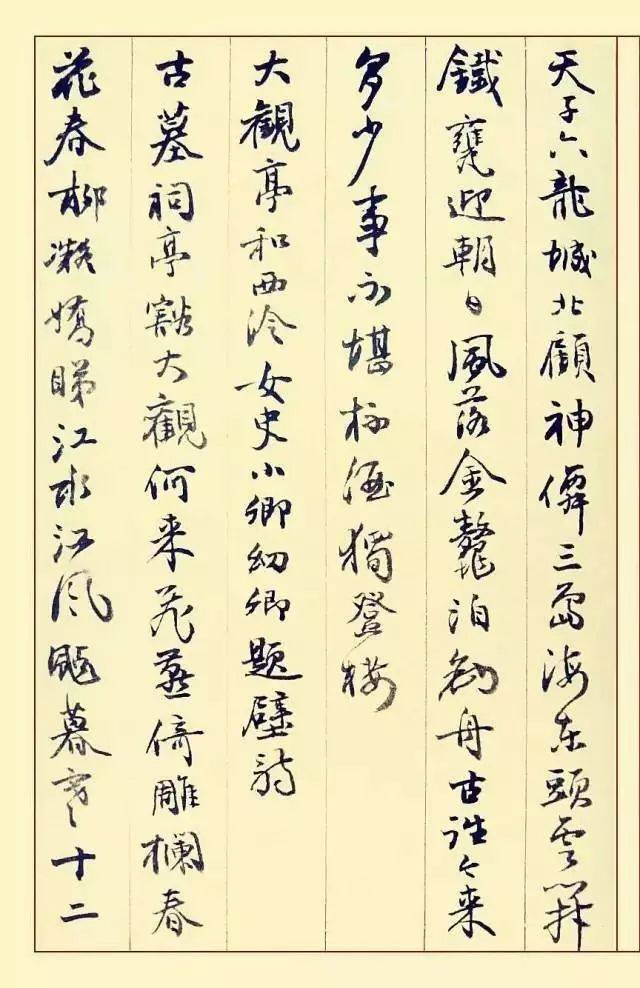 天子六龍城北顧神僊三島海东頭雲開
鐵甕迎朝日風落金鼇泊釣舟古往今来
多少事不堪杯酒獨登樓
大觀亭和西泠女史小卿幼卿題壁詩
古墓祠亭豁大觀何来飛燕倚雕欄春
花春柳凝嬌睇江水江风颭暮寒十二